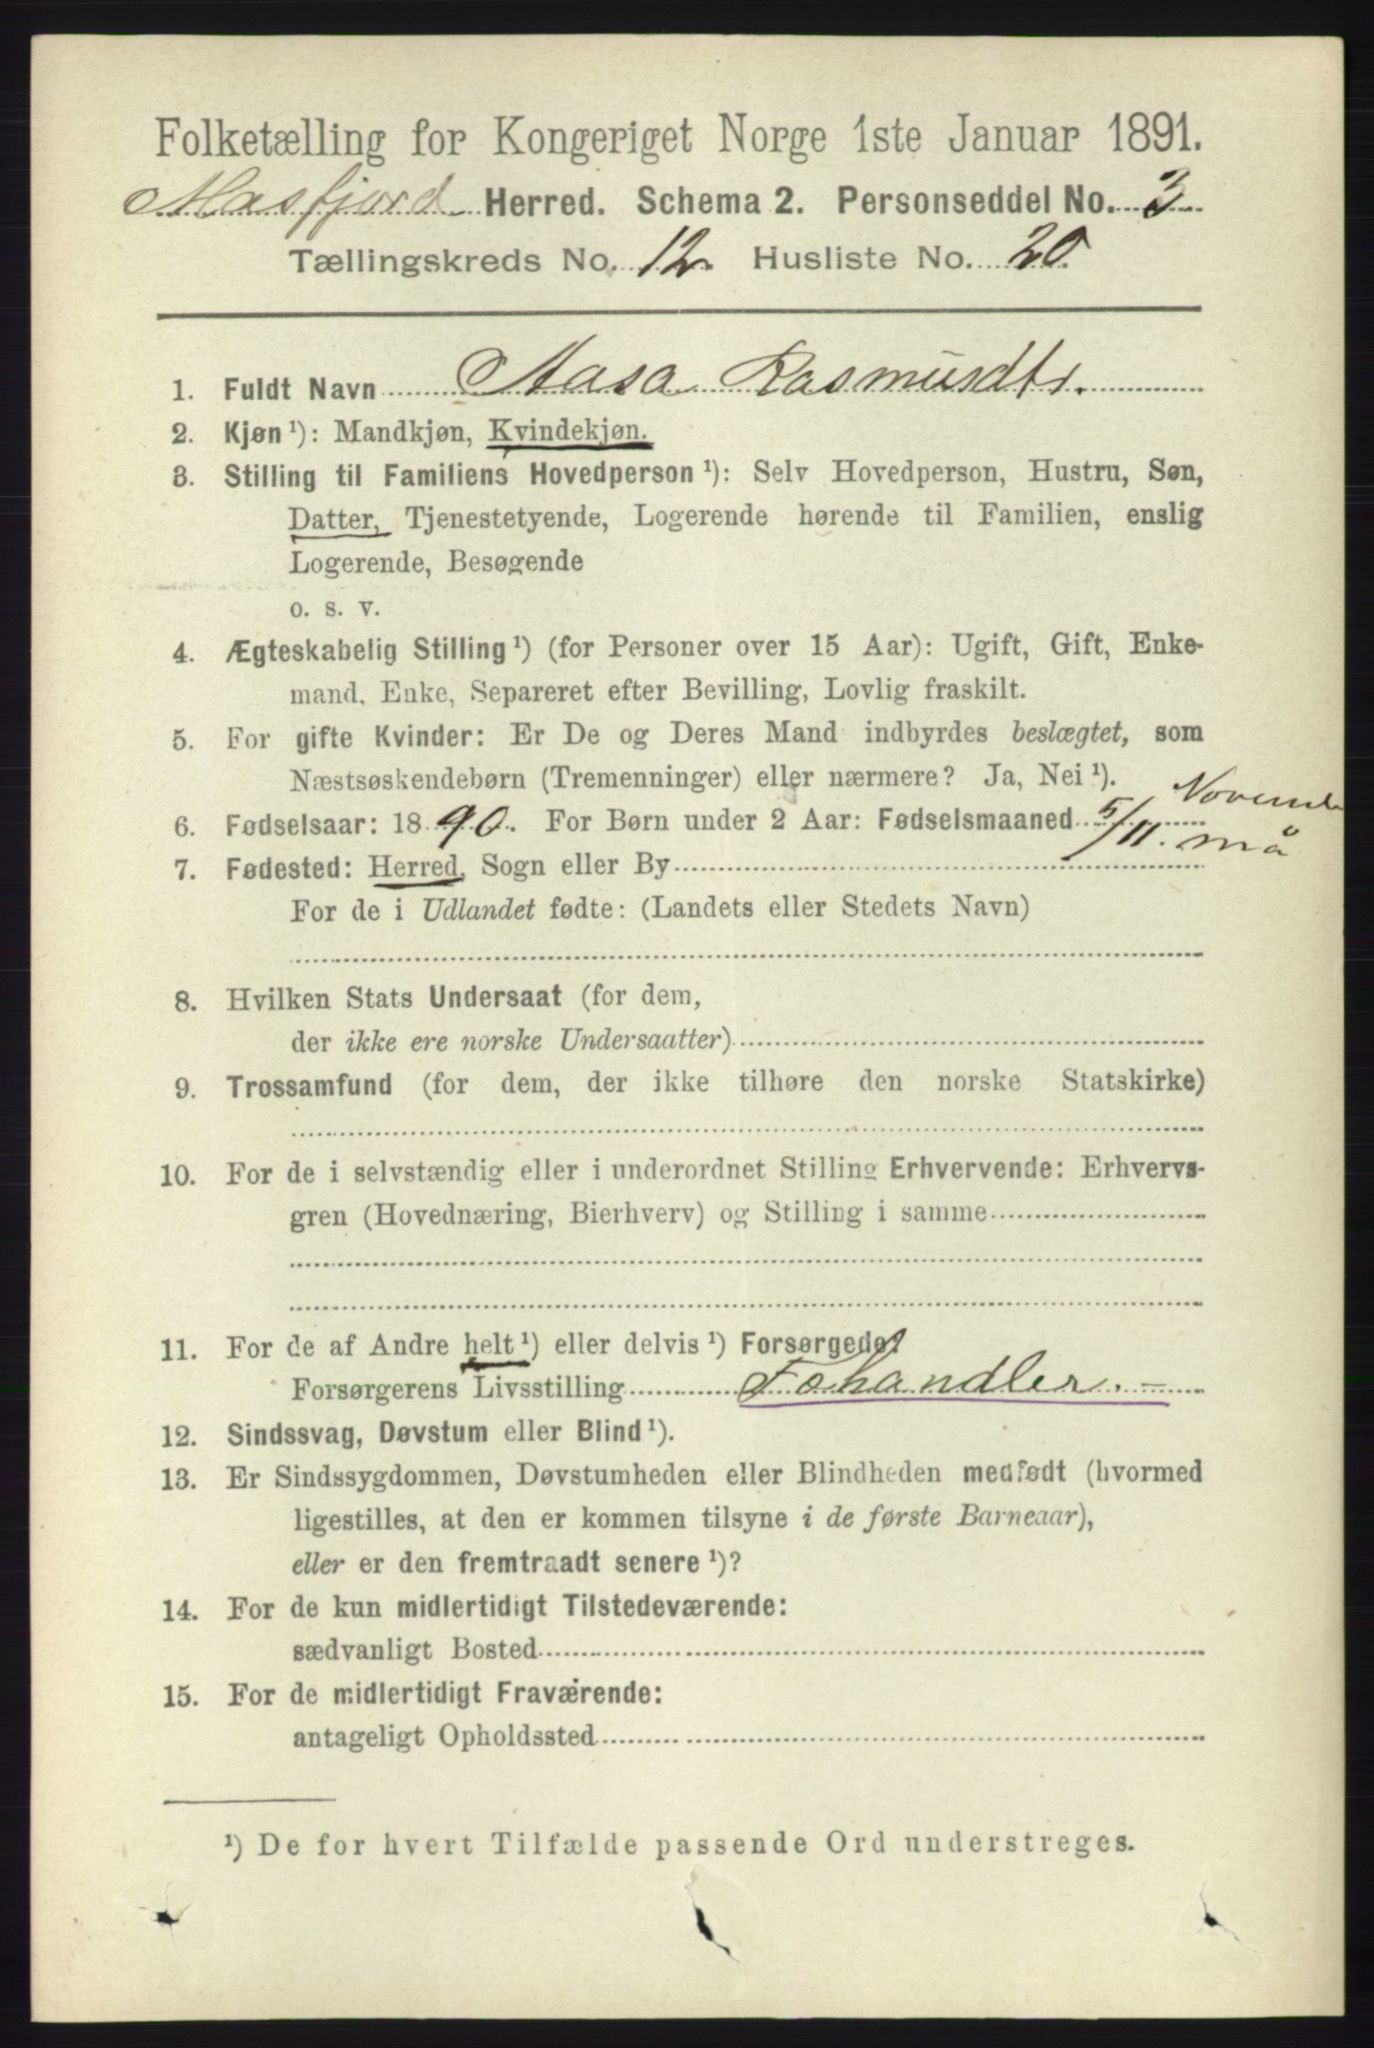 Folketælling for Kongeriget Norge 1ste Januar 1891.
Masfjord Herred. Schema 2. Personseddel No. 3
Tællingskreds No. 12. Husliste No. 20.
1. Fuldt Navn Aasa Rasmusdtr.
2. Kjøn ¹): Mandkjøn, Kvindekjøn.
3. Stilling til Familiens Hovedperson ¹): Selv Hovedperson, Hustru, Søn,
Datter, Tjenestetyende, Logerende hørende til Familien, enslig
Logerende, Besøgende
o. s. v.
4. Ægteskabelig Stilling ¹) (for Personer over 15 Aar): Ugift, Gift, Enke-
mand, Enke, Separeret efter Bevilling, Lovlig fraskilt.
5. For gifte Kvinder: Er De og Deres Mand indbyrdes beslægtet, som
Næstsøskendebørn (Tremenninger) eller nærmere? Ja, Nei ¹).
6. Fødselsaar: 1890. For Børn under 2 Aar: Fødselsmaaned 5/11. Novemb må
7. Fødested: Herred, Sogn eller By
For de i Udlandet fødte: (Landets eller Stedets Navn)
8. Hvilken Stats Undersaat (for dem,
der ikke ere norske Undersaatter)
9. Trossamfund (for dem, der ikke tilhøre den norske Statskirke)
10. For de i selvstændig eller i underordnet Stilling Erhvervende: Erhvervs-
gren (Hovednæring, Bierhverv) og Stilling i samme
11. For de af Andre helt ¹) eller delvis ¹) Forsørgede:
Forsørgerens Livsstilling Fehandler.
12. Sindssvag, Døvstum eller Blind ¹).
13. Er Sindssygdommen, Døvstumheden eller Blindheden medfødt (hvormed
ligestilles, at den er kommen tilsyne i de første Barneaar),
eller er den fremtraadt senere ¹)?
14. For de kun midlertidigt Tilstedeværende:
sædvanligt Bosted
15. For de midlertidigt Fraværende:
antageligt Opholdssted
¹) De for hvert Tilfælde passende Ord understreges.